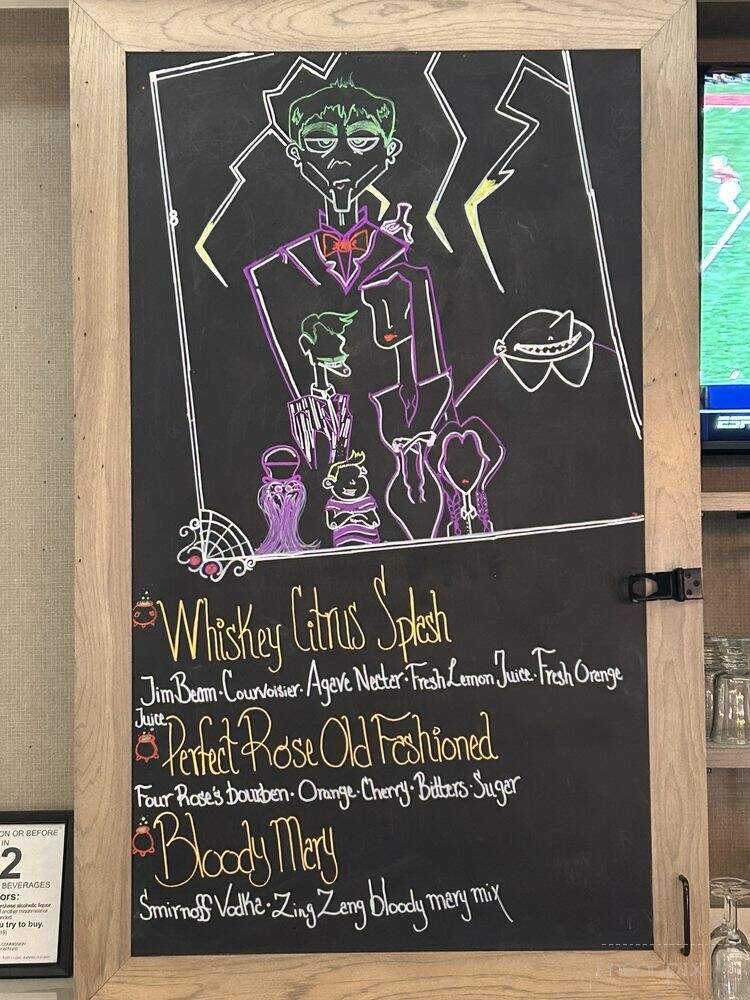 ESPN
Whiskey Citrus Splash
Jim Beam · Courvoisier · Agave Necter · Fresh Lemon Juice · Fresh Orange
Juice
Perfect Rose Old Fashioned
Four Rose's bourben · Orange · Cherry · Bitters · Sugar
Bloody Mary
Smirnoff Vodka · Zing Zang bloody mary mix
ON OR BEFORE
IN
2
BEVERAGES
ors:
rchase alcoholic liquor.
u try to buy.
COMMISSION